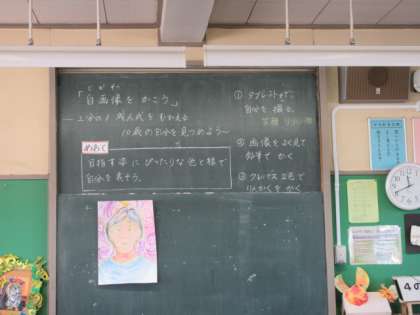 じがぞう
「自画像をかこう」
―2分の1成人式をむかえる
10歳の自分を見つめよう〜
めあて
目指す姿にぴったりな色と様で
自分を表そう。
① タブレットで
自分を撮る。
② 画像をよく見て
鉛筆でかく
③ クレパス2色で
りんかくをかく
4の